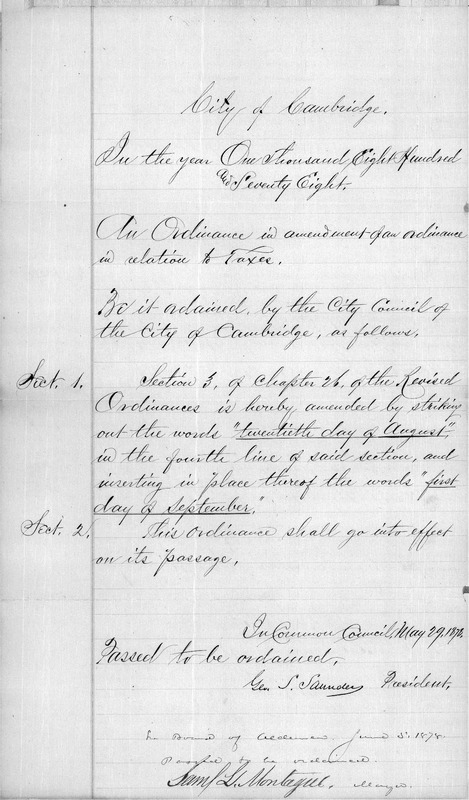 City of Cambridge.
In the year One Thousand Eight Hundred
and Seventy Eight.
An Ordinance in amendment of an ordinance
in relation to Taxes.
Be it ordained, by the City Council of
the City of Cambridge, as follows.
Sect. 1. Section 3, of Chapter 26, of the Revised
Ordinances is hereby amended by striking
out the words "twentieth day of August",
in the fourth line of said section, and
inserting in place thereof the words "first
day of September."
Sect. 2. This ordinance shall go into effect
on its passage.
In Common Council, May 29, 1878.
Passed to be ordained.
Geo. S. Saunders President.
In Board of Aldermen, June 5. 1878.
Passed to be ordained.
Saml L. Montague, Mayor.